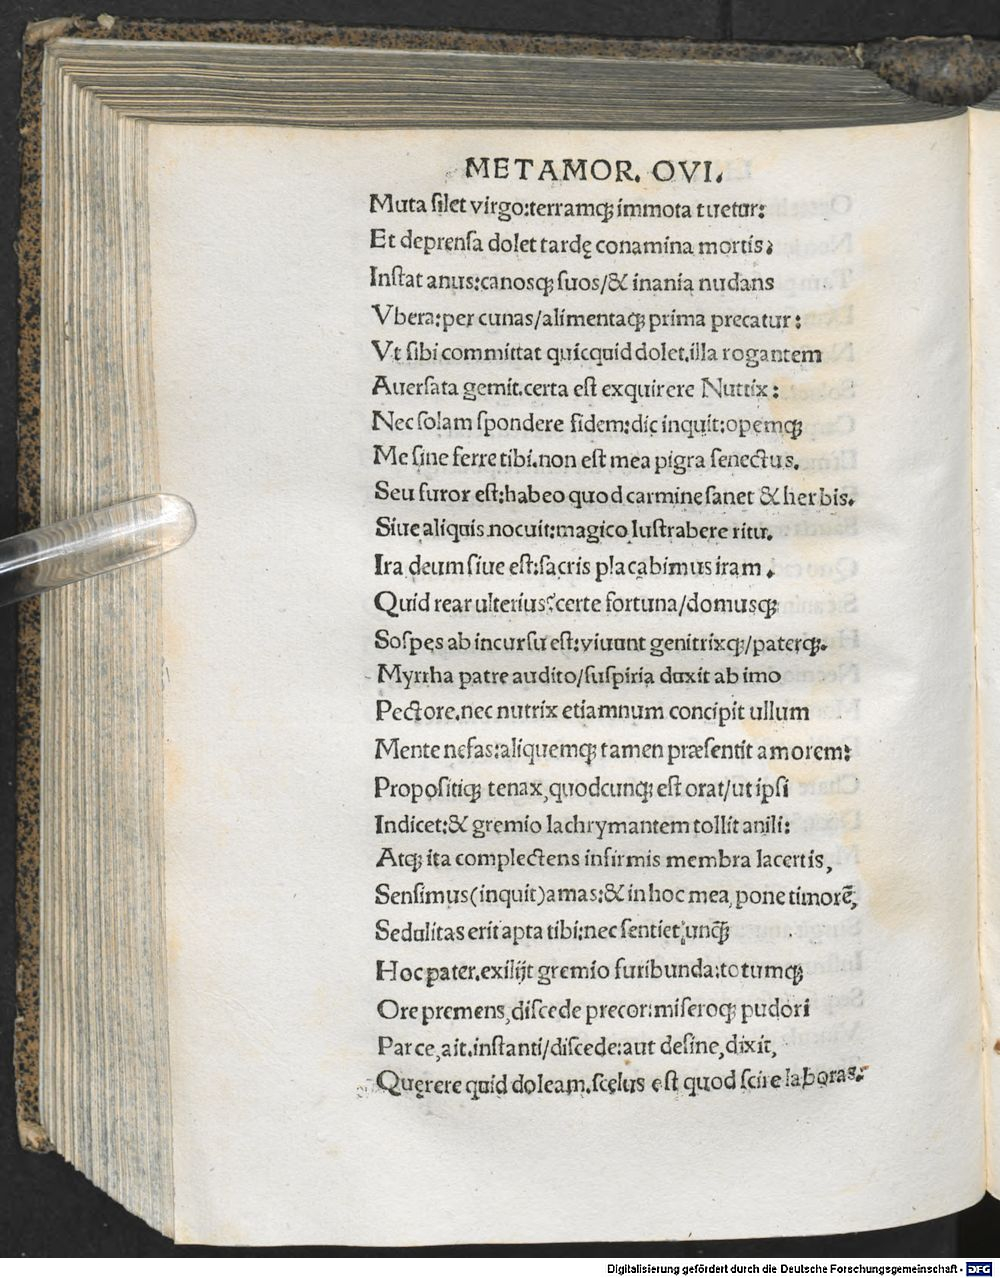 METAMOR. OVI.
Muta ſilet virgo:terramq; immota tuetur:
Et deprenſa dolet tardę conamina mortis:
Inſtat anus:canosq; ſuos/& inania nudans
Vbera:per cunas/alimentaq; prima precatur:
Vt ſibi committat quicquid dolet.illa rogantem
Auerſata gemit.certa eſt exquirere Nutrix:
Nec ſolam ſpondere fidem:dic inquit:opemq;
Me ſine ferre tibi.non eſt mea pigra ſenectus.
Seu furor eſt:habeo quod carmine ſanet & herbis.
Siue aliquis nocuit:magico luſtrabere ritu.
Ira deum ſiue eſt:ſacris placabimus iram.
Quid rear ulterius?certe fortuna/domusq;
Soſpes ab incurſu eſt:viuunt genitrixq;/paterq;.
Myrrha patre audito/ſuſpiria duxit ab imo
Pectore.nec nutrix etiamnum concipit ullum
Mente nefas:aliquemq; tamen præſentit amorem:
Propoſitiq; tenax,quodcunq; eſt orat/ut ipſi
Indicet:& gremio lachrymantem tollit anili:
Atq; ita complectens infirmis membra lacertis,
Senſimus(inquit)amas:& in hoc mea, pone timorē,
Sedulitas erit apta tibi:nec ſentiet unq̃;
Hoc pater.exilijt gremio furibunda:totumq;
Ore premens,diſcede precor:miſeroq; pudori
Parce,ait.inſtanti/diſcede:aut deſine,dixit,
Quęrere quid doleam.ſcelus eſt quod ſcire laboras.
Digitalisierung gefördert durch die Deutsche Forschungsgemeinschaft - DFG